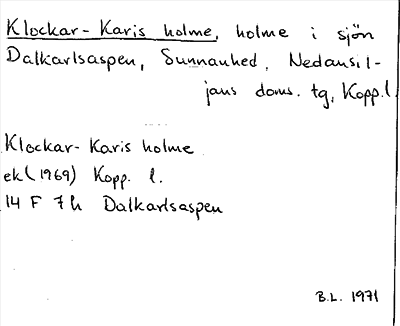 Klockar-Karis holme, holme i sjön
Dalkarlsaspen, Sunnanhed, Nedansil-
jans doms. tg, Kopp. l.
Klockar-Karis holme
ek (1969) Kopp. l.
14 F 7 h Dalkarlsaspen
B.L. 1971